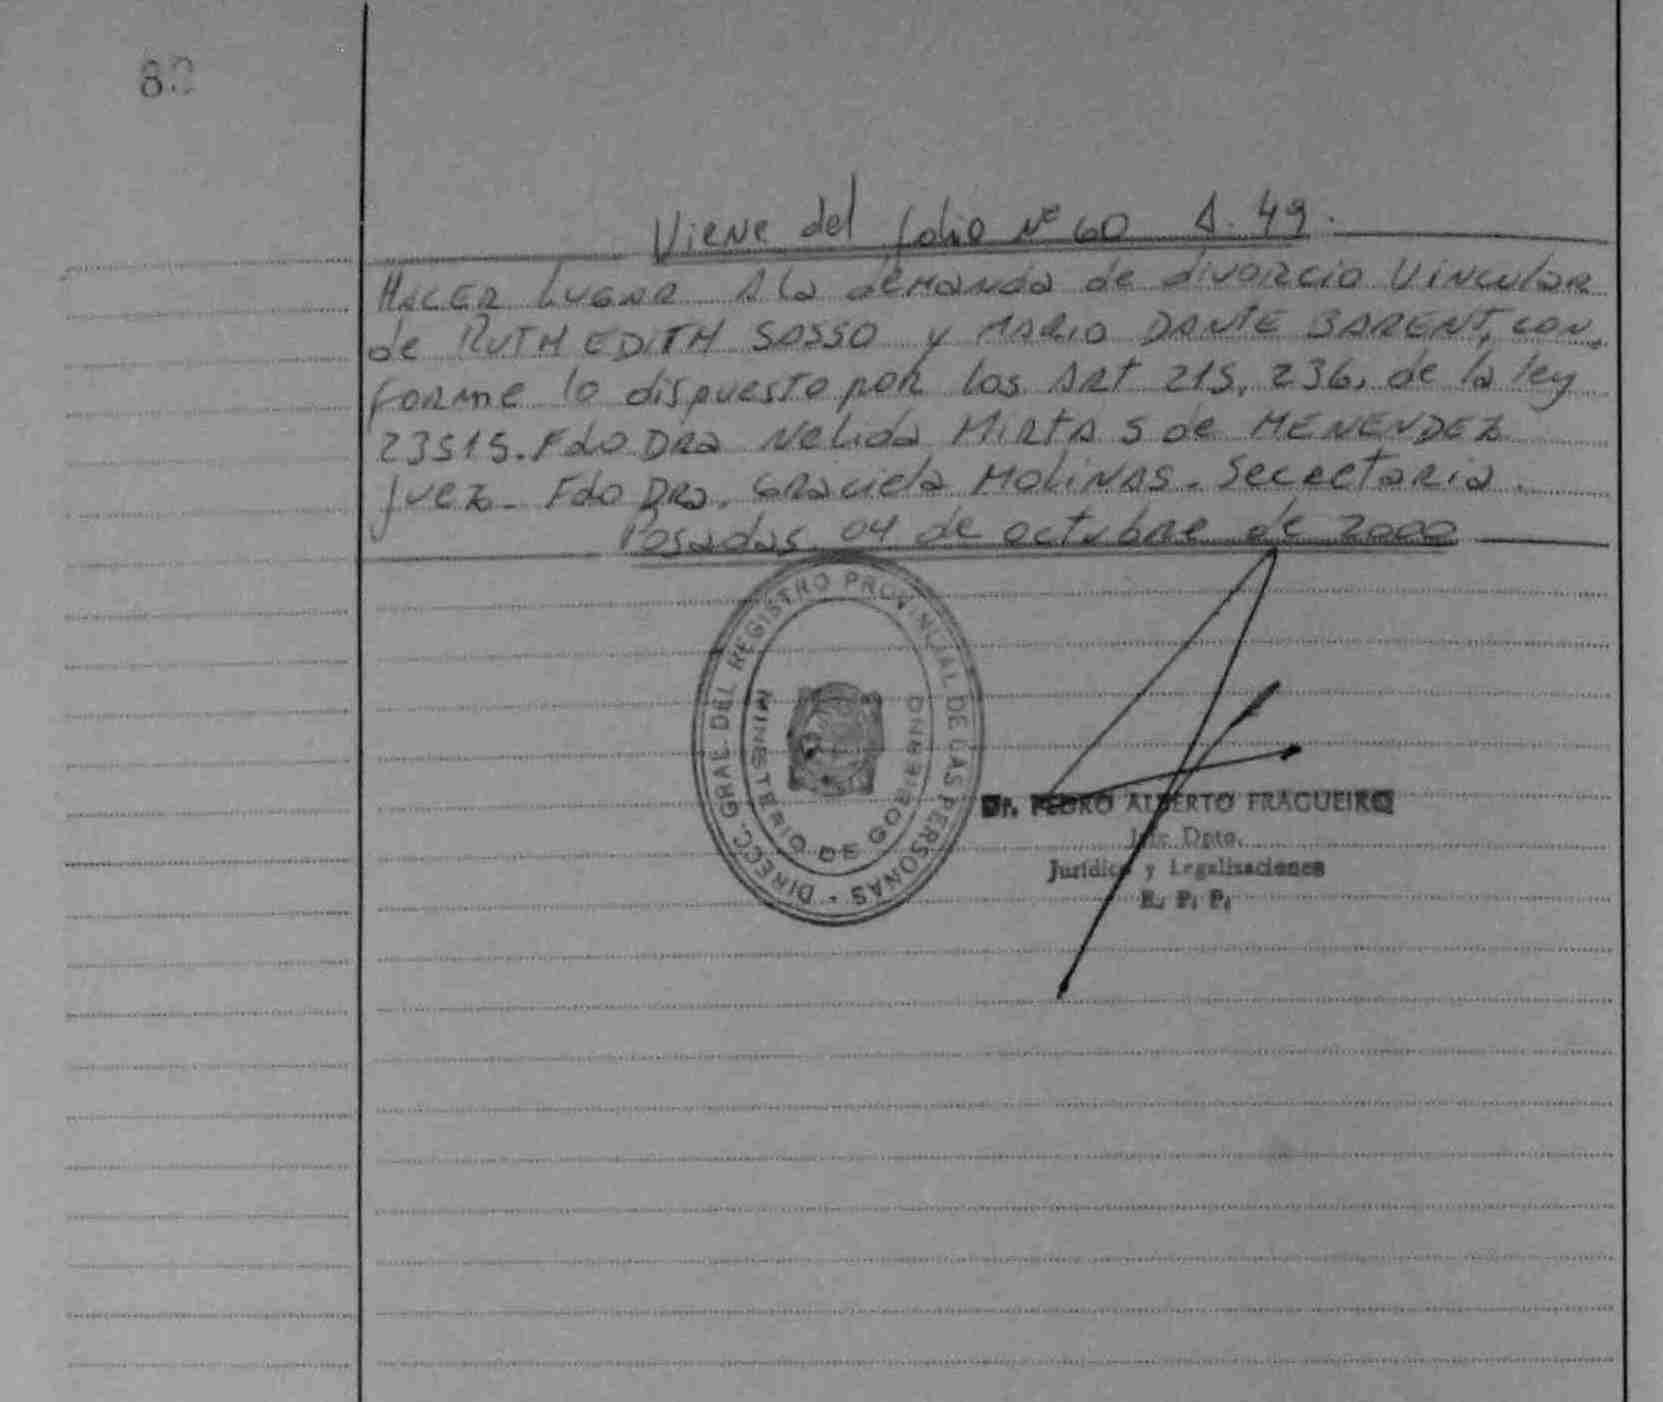 80
Viene del folio Nº 60 A. 49.
HACER LUGAR A la demanda de divorcio Vincular
de RUTH EDITH SOSSO y MARIO DANTE BARENT, con-
forme lo dispuesto por los Art 215, 236, de la ley
23515. Fdo Dra Nelida MIRTA S de MENENDEZ
Juez - Fdo Dra. Graciela MOLINAS. Secretaria.
Posadas, 04 de octubre de 2000
DIRECC. GRAL DEL REGISTRO PROVINCIAL DE LAS PERSONAS -
MINISTERIO DE GOBIERNO
Dr. PEDRO ALBERTO FRAGUEIRO
Dpto.
Jurídico y Legalizaciones
R. P. P.